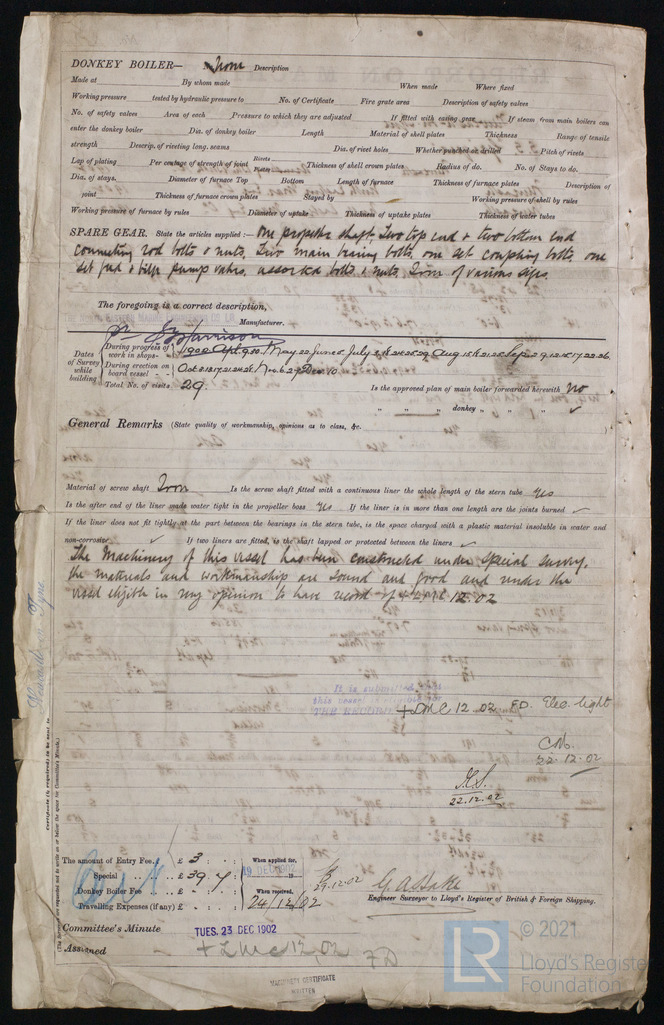 DONKEY BOILER— No. Iron Description
Made at By whom made When made Where fixed
Working pressure tested by hydraulic pressure to No. of Certificate Fire grate area Description of safety valves
No. of safety valves Area of each Pressure to which they are adjusted If fitted with easing gear If steam from main boilers can
enter the donkey boiler Dia. of donkey boiler Length Material of shell plates Thickness Range of tensile
strength Descrip. of riveting long. seams Dia. of rivet holes Whether punched or drilled Pitch of rivets
Lap of plating Per centage of strength of joint Rivets Plates Thickness of shell crown plates Radius of do. No. of Stays to do.
Dia. of stays. Diameter of furnace Top Bottom Length of furnace Thickness of furnace plates Description of
joint Thickness of furnace crown plates Stayed by Working pressure of shell by rules
Working pressure of furnace by rules Diameter of uptake Thickness of uptake plates Thickness of water tubes
SPARE GEAR. State the articles supplied:— One propeller shaft, Two top end & two bottom end
connecting rod bolts & nuts, Two main bearing bolts, one set coupling bolts, one
set feed & bilge pump valves, assorted bolts & nuts, Iron of various sizes.
The foregoing is a correct description,
Harrison Manufacturer.
Dates of Survey while building
During progress of work in shops - -
During erection on board vessel - - -
Total No. of visits 29.
Is the approved plan of main boiler forwarded herewith no
" " " donkey " " " ✓
General Remarks (State quality of workmanship, opinions as to class, &c.
Material of screw shaft Iron Is the screw shaft fitted with a continuous liner the whole length of the stern tube yes
Is the after end of the liner made water tight in the propeller boss yes If the liner is in more than one length are the joints burned ✓
If the liner does not fit tightly at the part between the bearings in the stern tube, is the space charged with a plastic material insoluble in water and
non-corrosive ✓ If two liners are fitted, is the shaft lapped or protected between the liners ✓
The Machinery of this vessel has been constructed under special survey,
the materials and workmanship are sound and good and under the
vessel eligible in my opinion to have record of + LMC 12.02
Newcastle on Tyne
It is submitted
this vessel is
THE RECORD
+ LMC 12.02 FD. Elec. light
22.12.02
22.12.02
The amount of Entry Fee . . £ 3 : :
Special . . . . £ 39 . 4 :
Donkey Boiler Fee . . £ - : :
Travelling Expenses (if any) £ - : :
When applied for,
19 DEC 1902
When received,
24/12/02
22.12.02
Engineer Surveyor to Lloyd's Register of British & Foreign Shipping.
Committee's Minute TUES. 23 DEC 1902
Assigned + LMC 12.02 FD
MACHINERY CERTIFICATE
WRITTEN
LR
© 2021
Lloyd's Register
Foundation